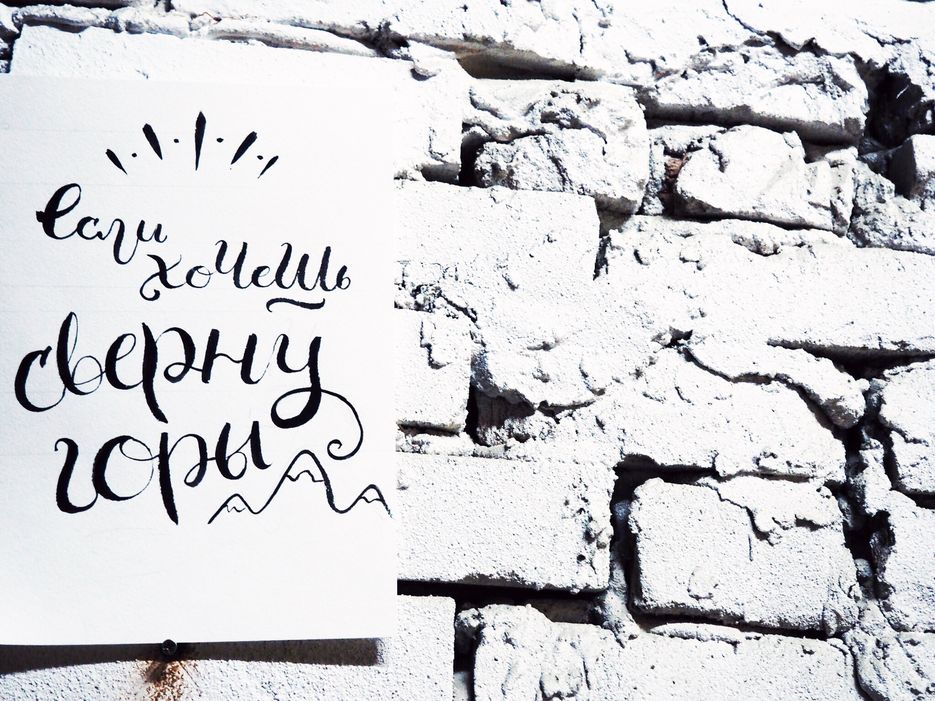 Если
хочешь
сверну
горы